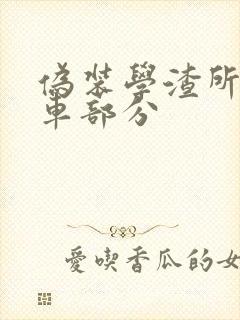 偽裝學渣所
車部分
愛喫香瓜的女